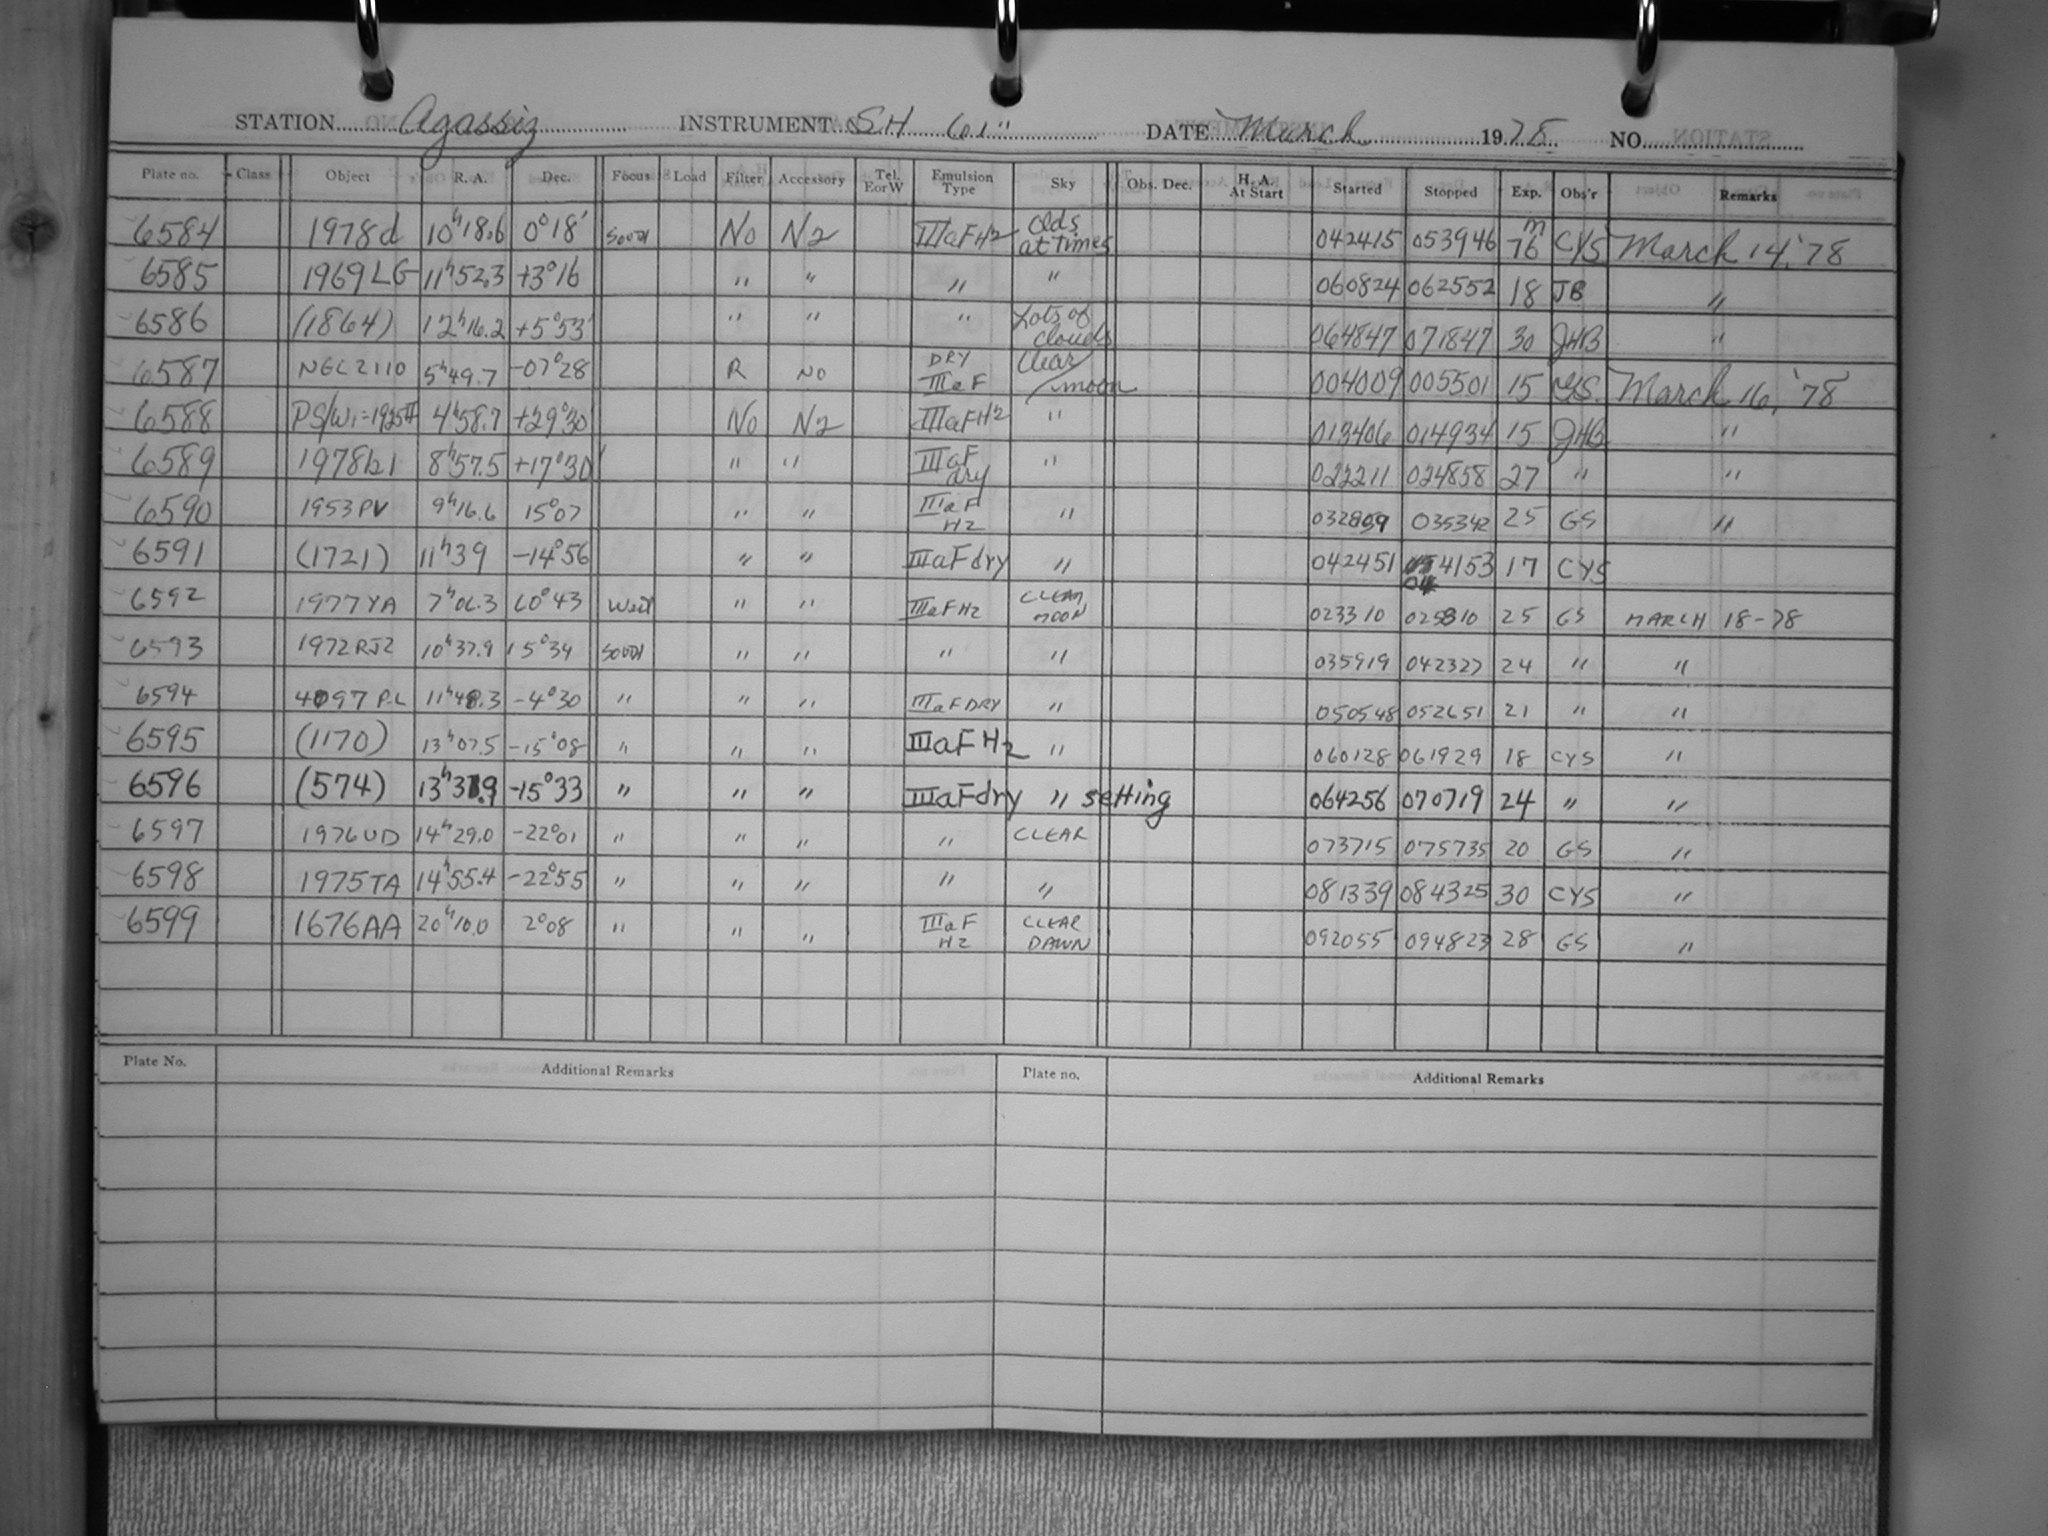 STATION Agassiz INSTRUMENT SH 61" DATE March 1978 NO.
Plate no. Class Object R. A. Dec. Focus Load Filter Accessory Tel. E or W Emulsion Type Sky Obs. Dec. H. A. At Start Started Stopped Exp. Obs'r Remarks
6584 1978d 10h18.6 0°18' South No N2 IIIaFH2 Clds at times 042415 053946 76m CYS March 14, '78
6585 1969LG 11h52.3 +3°16 " " " " 060824 062552 18 JB "
6586 (1864) 12h16.2 +5°53' " " " Lots of clouds 064847 071847 30 JHB "
6587 NGC2110 5h49.7 -07°28 R No DRY IIIaF Clear/moon 004009 005501 15 GS. March 16, '78
6588 PS/W1=1925II 4h58.7 +29°30' No N2 IIIaFH2 " 013406 014934 15 JHB "
6589 8h57.5 +17°30' " " IIIaF dry " 022211 024858 27 " "
6590 1953PV 9h16.6 15°07 " " IIIaF H2 " 032809 035342 25 GS "
6591 (1721) 11h39 -14°56 " " IIIaFdry " 042451 044153 17 CYS
6592 1977YA 7h06.3 60°43 West " " IIIaFH2 CLEAR MOON 023310 025810 25 GS MARCH 18-78
6593 1972RJ2 10h37.9 15°34 South " " " " 035919 042327 24 " "
6594 4097 P-L 11h48.3 -4°30 " " " IIIaFDRY " 050548 052651 21 " "
6595 (1170) 13h07.5 -15°08 " " " IIIaFH2 " 060128 061929 18 CYS "
6596 (574) 13h31.9 -15°33 " " " IIIaFdry " setting 064256 070719 24 " "
6597 1976UD 14h29.0 -22°01 " " " " CLEAR 073715 075735 20 GS "
6598 1975TA 14h55.4 -22°55 " " " " " 081339 084325 30 CYS "
6599 1676AA 20h10.0 2°08 " " " IIIaF H2 CLEAR DAWN 092055 094823 28 GS "
Plate No. Additional Remarks Plate no. Additional Remarks